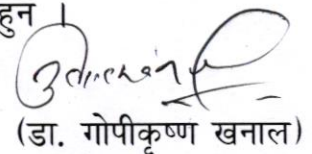 हुन ।
(डा. गोपीकृष्ण खनाल)